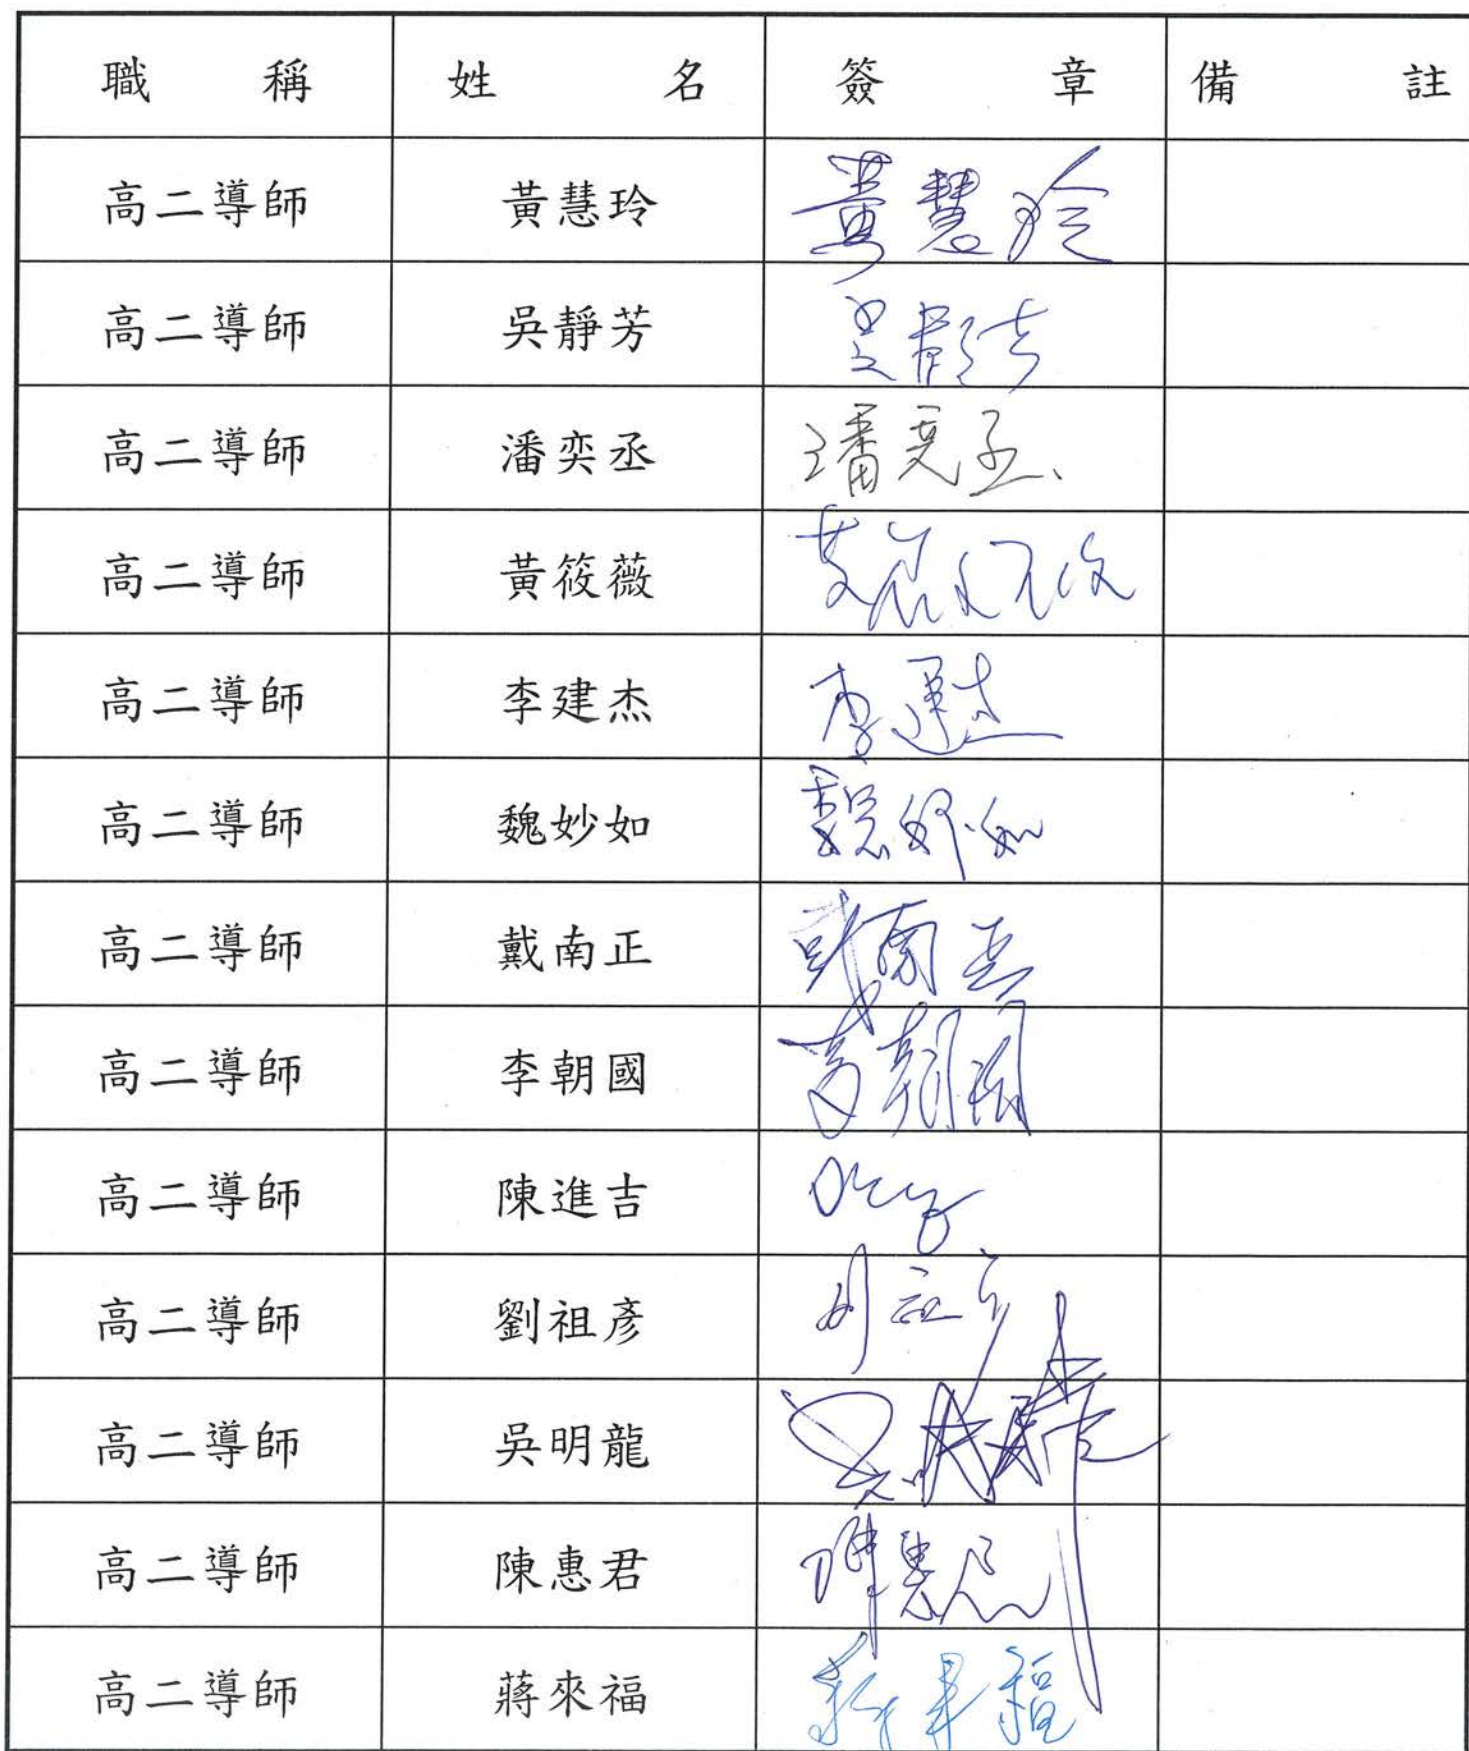 職稱 姓名 簽章 備註
高二導師 黃慧玲 黃慧玲
高二導師 吳靜芳 吳靜芳
高二導師 潘奕丞 潘奕丞
高二導師 黃筱薇
高二導師 李建杰 李建杰
高二導師 魏妙如 魏妙如
高二導師 戴南正 戴南正
高二導師 李朝國 李朝國
高二導師 陳進吉
高二導師 劉祖彥 劉祖彥
高二導師 吳明龍 吳明龍
高二導師 陳惠君 陳惠君
高二導師 蔣來福 蔣來福